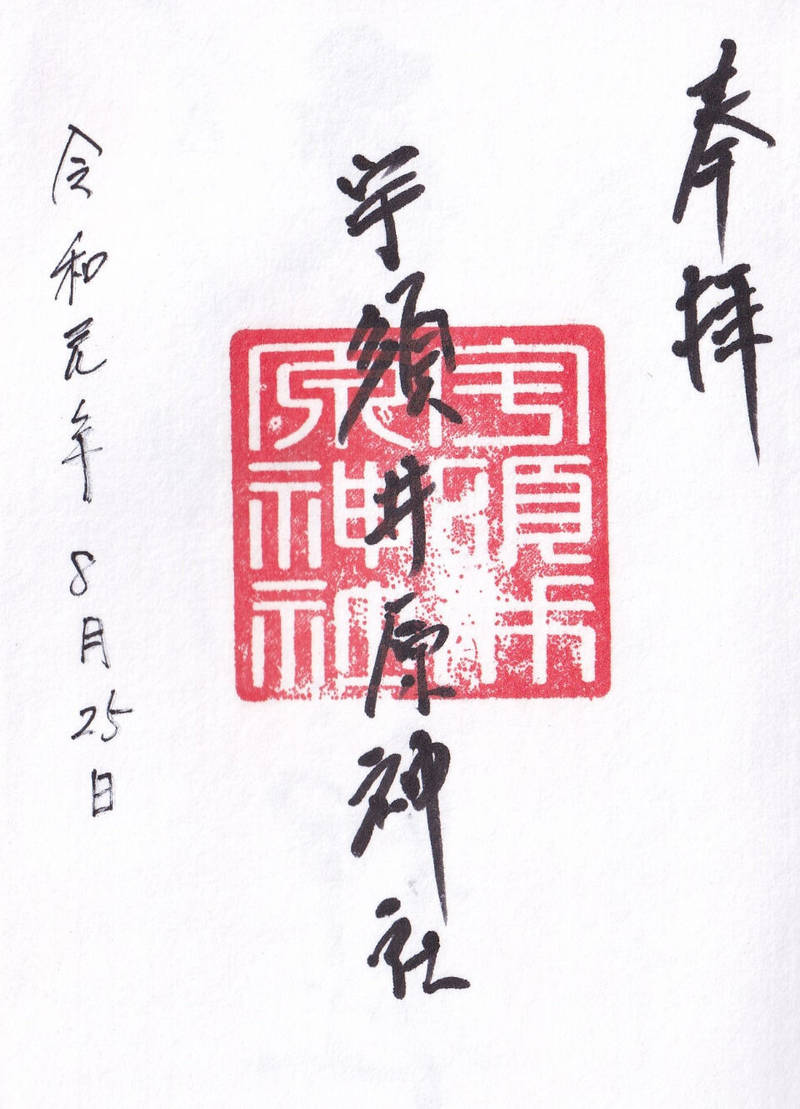 奉拝
宇須井原神社
宇須井
原神社
令和元年8月25日